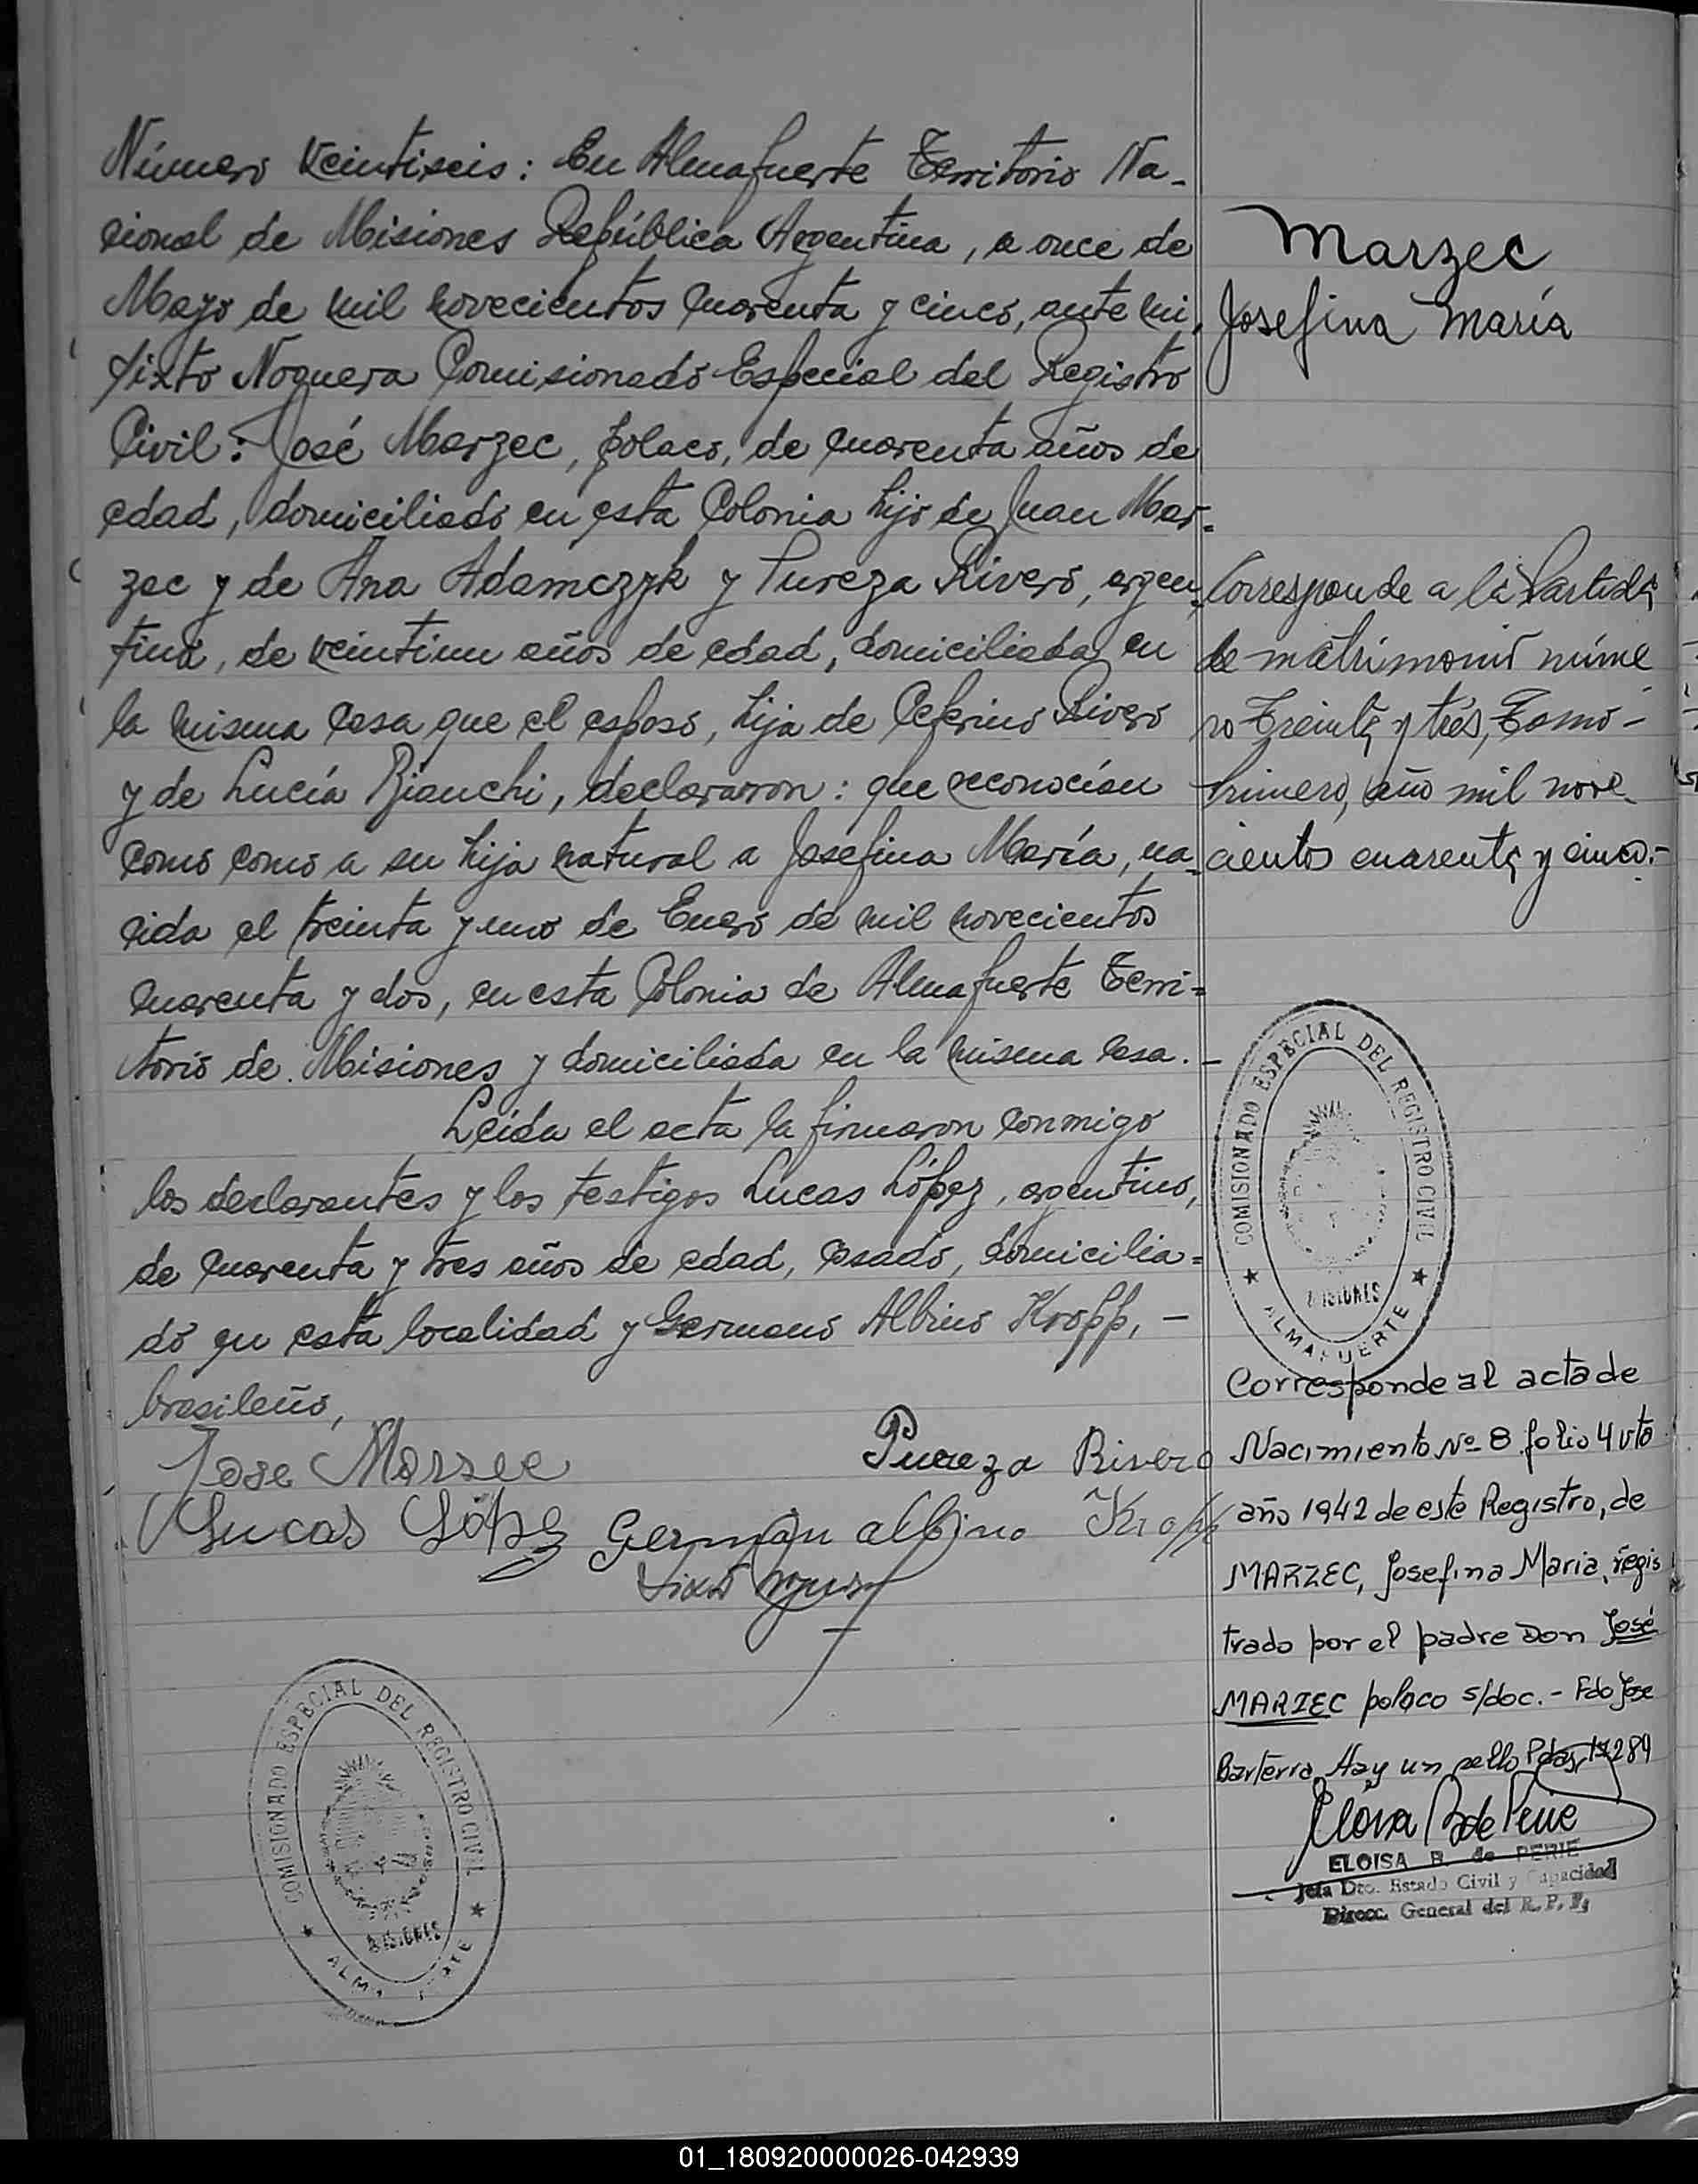 Número veintiseis: En Almafuerte Territorio Na-
cional de Misiones República Argentina, a once de
Mayo de mil novecientos cuarenta y cinco, ante mi,
Sixto Noguera Comisionado Especial del Registro
Civil: José Marzec, polaco, de cuarenta años de
edad, domiciliado en esta Colonia hijo de Juan Mar-
zec y de Ana Adamczyk y Pureza Rivero, argen-
tina, de veintiun años de edad, domiciliada en
la misma casa que el esposo, hija de Ceferino Rivero
y de Lucía Bianchi, declararon: que reconocían
como como a su hija natural a Josefina María, na-
cida el treinta y uno de Enero de mil novecientos
cuarenta y dos, en esta Colonia de Almafuerte Terri-
torio de Misiones y domiciliada en la misma casa.-
Leída el acta la firmaron conmigo
los declarantes y los testigos Lucas López, argentino,
de cuarenta y tres años de edad, casado, domicilia-
do en esta localidad y Germano Albino Kropp, -
brasileño,
Jose Marzec Pureza Rivero
Lucas López German albino Kropp
Sixto Noguera
COMISIONADO ESPECIAL DEL REGISTRO CIVIL
MISIONES
ALMAFUERTE
Marzec
Josefina María
Corresponde a la Partida
de matrimonio núme
ro Treinta y tres, Tomo-
Primero, año mil nove-
cientos cuarenta y cinco.-
COMISIONADO ESPECIAL DEL REGISTRO CIVIL
MISIONES
ALMAFUERTE
Corresponde al acta de
Nacimiento Nº 8 folio 4 vto
año 1942 de este Registro, de
MARZEC, Josefina Maria, regis
trado por el padre Don José
MARZEC polaco s/doc.- Fdo Jose
Barterra, Hay un sello Pdas,
ELOISA B. de PERIE
Jefa Dto. Estado Civil y Capacidad
Direcc. General del R. P. P.
01_180920000026-042939